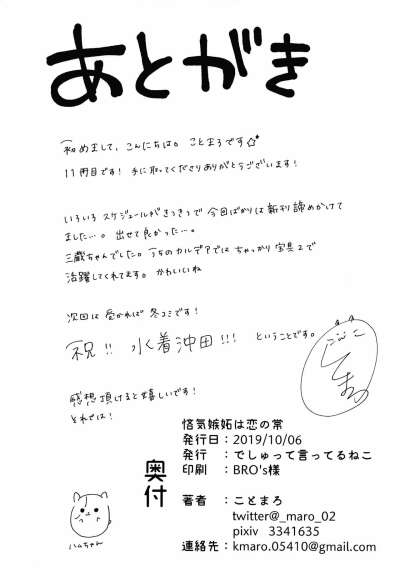 あとがき
初めまして、こんにちは。ことまろです☆
11冊目です！手に取ってくださりありがとうございます！
いろいろスケジュールがきつきつで今回ばかりは新刊諦めかけて
ました…。出せて良かった…。
三蔵ちゃんでした。うちのカルデアではちゃっかり宝具2で
活躍してくれてます。かわいいね
次回は受かれば冬コミです！
祝!! 水着沖田!!! ということです。
感想頂けると嬉しいです！
それでは！
ハムちゃん
奥付
悋気嫉妬は恋の常
発行日：2019/10/06
発行　：でしゅって言ってるねこ
印刷　：BRO's様
著者　：ことまろ
twitter@_maro_02
pixiv 3341635
連絡先：kmaro.05410@gmail.com